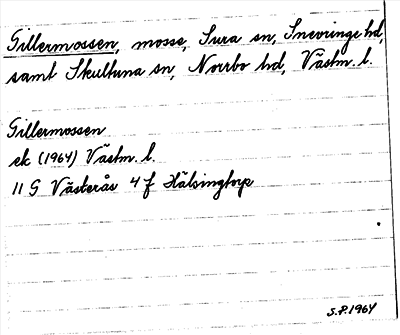 Gillermossen, mosse, Sura sn, Snevringe hd,
samt Skultuna sn, Norrbo hd, Västm. l.
Gillermossen
ek (1964) Västm. l.
11 G Västerås 4 f Hälsingtorp
S.P. 1964